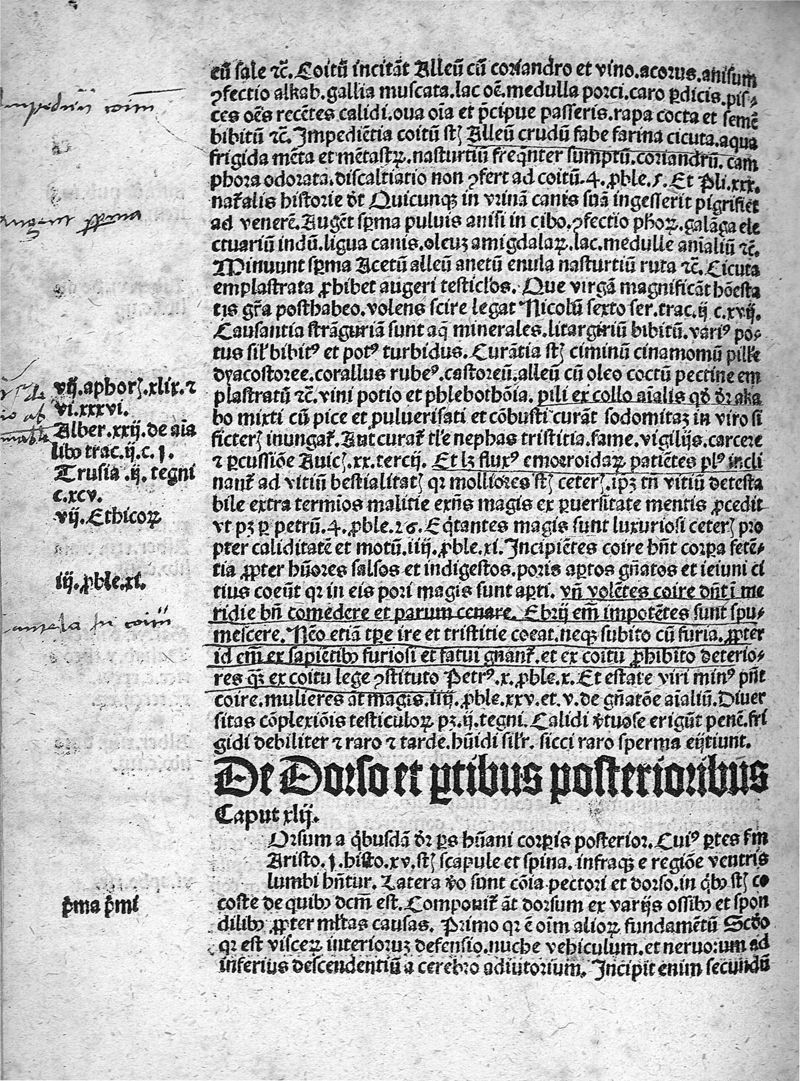 eū sale ⁊c̄. Coitū incitāt Alleū cū coriandro et vino. acorus. anisum
ꝯfectio alkab. gallia muscata. lac oē. medulla porci. caro p̄dicis. pis⸗
ces oēs recētes calidi. oua oīa et p̄cipue passeris. rapa cocta et semē
bibitū ⁊c̄. Impediētia coitū st̄ Alleū crudū fabe farina cicuta. aqua
frigida mēta et mētastꝝ. nasturtiū freq̄nter sumptū. coriandrū. cam
phora odorata. discaltiatio non ꝯfert ad coitū. 4. ꝓble. 5. Et Pli. xxx.
nat̄alis historie dt̄ Quicunqꝫ in vrinā canis suā ingesserit pigrifiet
ad venerē. Augēt sꝑma puluis anisi in cibo. ꝯfectio phoꝝ. galāga ele
ctuariū indū. ligua canis. oleuꝫ amigdalaꝝ. lac. medulle aīaliū ⁊c̄.
Minuunt sꝑma Acetū alleū anetū enula nasturtiū ruta ⁊c̄. Cicuta
emplastrata ꝓhibet augeri testiclōs. Que virgā magnificāt hōesta
tis gr̄a posthabeo. volens scire legat Nicolū sexto ser. trac. ij. c. xvij.
Causantia strāguriā sunt aq̄ minerales. litargiriū bibitū. variꝰ po⸗
tus sil̄ bibitꝰ et potꝰ turbidus. Curātia st̄ ciminū cinamomū pill̄e
dyacostoree. corallus rubeꝰ. castoreū. alleū cū oleo coctū pectine em
plastratū ⁊c̄. vini potio et phlebothōia. pili ex collo aīalis qd̄ dr̄ aka
bo mixti cū pice et puluerisati et cōbusti curāt sodomitaꝫ in viro si
ficteꝝ inungat̄. Aut curat̄ tl̄e nephas tristitia. fame. vigilijs. carcere
⁊ ꝑcussiōe Auicꝫ. xx. tercij. Et lꝫ fluxꝰ emorroidaꝝ patiētes plꝰ incli
nant̄ ad vitiū bestialitatꝫ qꝛ molliores st̄ ceterꝫ. ipꝫ tn̄ vitiū detesta
bile extra termīos malitie exn̄s magis ex ꝑuersitate mentis ꝓcedit
vt pꝫ ꝑ petrū. 4. ꝓble. 26. Eq̄tantes magis sunt luxuriosi ceterꝫ pro
pter caliditatē et motū. iiij. ꝓble. xi. Incipiētes coire hn̄t corꝑa fetē⸗
tia ꝓpter hūores salsos et indigestos. poris aꝑtos gn̄atos et ieiuni ci
tius coeūt qꝛ in eis pori magis sunt aꝑti. vn̄ volētes coire dn̄t ī me
ridie bn̄ comedere et parum cenare. Ebrij em̄ impotētes sunt spu⸗
mescere. Nec̄ etiā tꝑe ire et tristitie coeat. neqꝫ subito cū furia. ꝓpter
id em̄ ex sapiētibꝰ furiosi et fatui gnant̄. et ex coitu ꝓhibito deterio⸗
res qꝫ ex coitu lege ꝯstituto Petrꝰ. x. ꝓble. x. Et estate viri minꝰ pn̄t
coire. mulieres āt magis. iiij. ꝓble. xxv. et. v. de gn̄atōe aīaliū. Diuer
sitas cōplexiōis testiculoꝝ pꝫ. ij. tegni. Calidi v̄tuose erigūt penē. fri
gidi debiliter ⁊ raro ⁊ tarde. hūidi silr̄. sicci raro sperma eijtiunt.
De Dorso et ꝑtibus posterioribus
Caput xlij.
Orsum a q̄busdā dr̄ ꝑs hūani corꝑis posterior. Cuiꝰ ꝑtes fm̄
Aristo. j. histo. xv. st̄ scapule et spina. infraqꝫ e regiōe ventris
lumbi hn̄tur. Latera v̄o sunt cōia pectori et dorso. in q̄bꝰ st̄ co
coste de quibꝰ dcm̄ est. Componit̄ āt dorsum ex varijs ossibꝰ et spon
dilibꝰ ꝓpter ml̄tas causas. Primo qꝛ ē oīm alioꝝ fundamētū Scd̄o
qꝛ est visceꝝ interioruꝫ defensio. nuche vehiculum. et neruorum ad
inferius descendentiū a cerebro adiutorium. Incipit enim secundū
Impediūt coitū
Augent sperma
vij. aphorꝫ. xlix. ⁊
vi. xxxvi.
Alber. xxij. de aīa
libꝰ trac. ij. c. j.
Trusia. ij. tegni
c. xcv.
vij. Ethicoꝝ
iij. ꝓble. xi.
p̄ma p̄mi